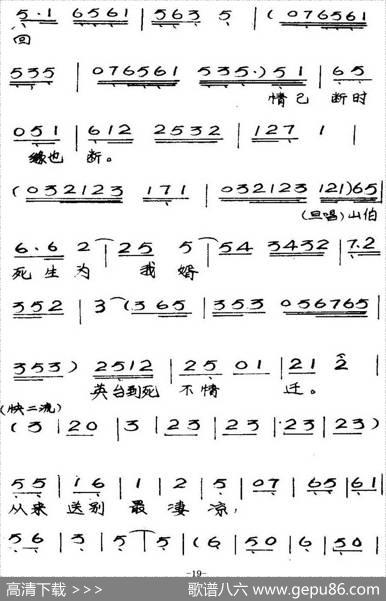 5·1 6561 | 563 5 | (076561
回
535 | 076561 535·) 51 | 65
情已 断时
051 | 612 2532 | 127 1 |
缘也 断。
(032123 171 | 032123 121) 65 |
(旦唱) 山伯
6·6 2 | 25 5 | 54 3432 | 7·2
死生为 我婿
352 | 3 (365 | 353 056765 |
353) 2512 | 25 01 | 21 2 |
英台到死 不情 迁。
(快二流)
(3 | 20 | 3 | 23 | 23 | 23 | ·23 | 23)
55 | 16 | 1 | 2 | 5 | 07 | 65 | 61 |
从来 送别 最 凄 凉，
56 | 3 | 5 | 5 | (6 | 50 | 6 | 50 |
-19-
高清下载 >>>
歌谱八六 www.gepu86.com